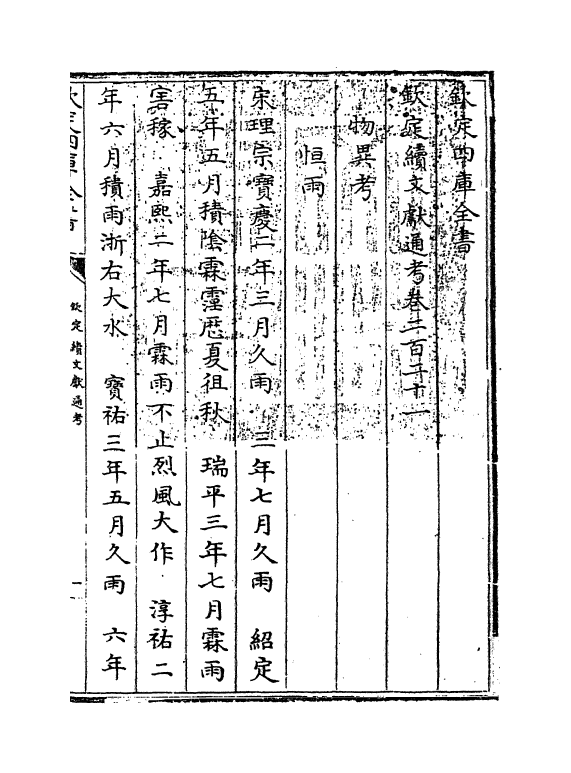 欽定四庫全書
欽定續文獻通考卷二百二十一
物異考
恒雨
宋理宗寶慶二年三月久雨 三年七月久雨 紹定
五年五月積陰霖霪歴夏徂秋 瑞平三年七月霖雨
害稼 嘉熙二年七月霖雨不止烈風大作 淳祐二
年六月積雨浙右大水 寶祐三年五月久雨 六年
欽定四庫全書
欽定續文獻通考
一